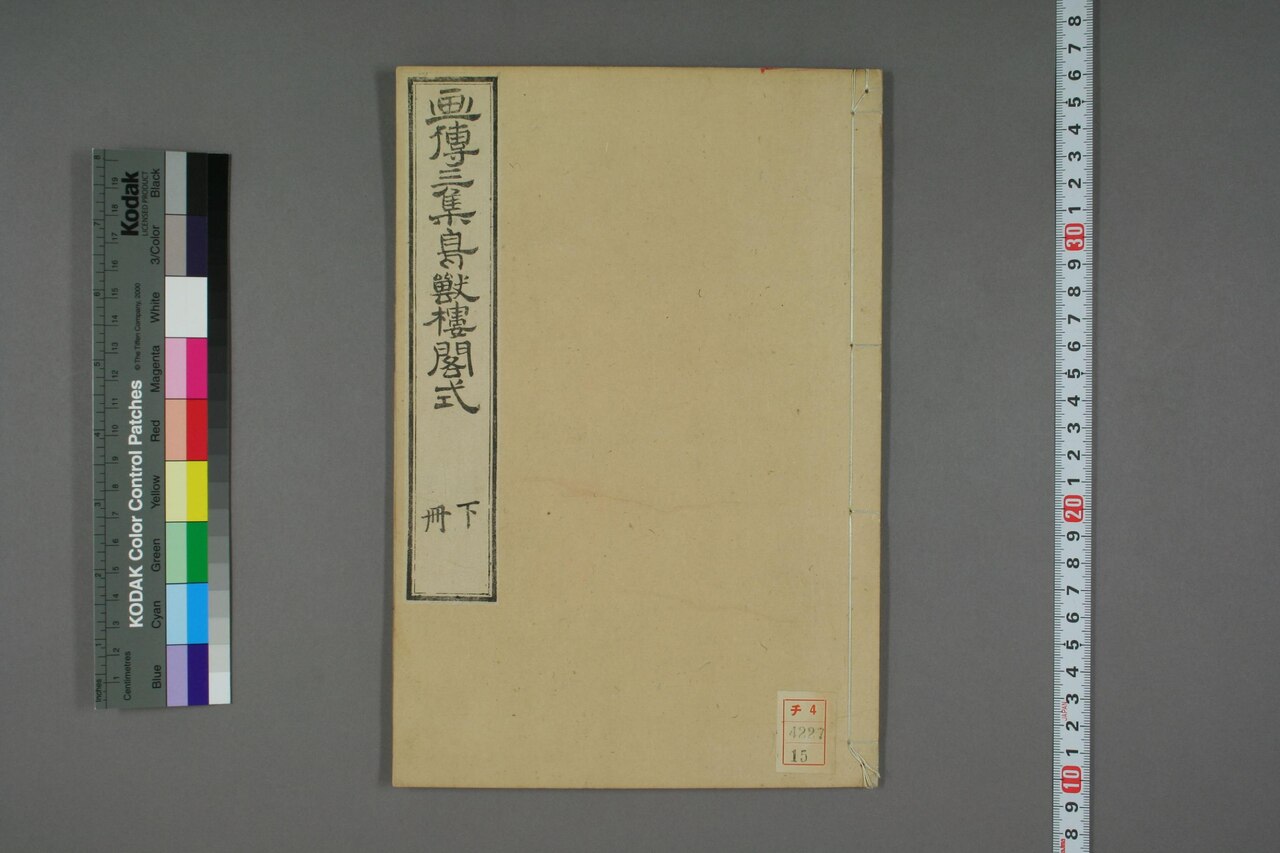 画傳三集鳥獸樓閣式
下
冊
チ 4
4227
15
Kodak
LICENSED PRODUCT
KODAK Color Control Patches
© The Tiffen Company, 2000
Blue
Cyan
Green
Yellow
Red
Magenta
White
3/Color
Black
Inches
1
2
3
4
5
6
7
8
Centimetres
1
2
3
4
5
6
7
8
9
10
11
12
13
14
15
16
17
18
19
8
7
6
5
4
3
2
1
30
9
8
7
6
5
4
3
2
1
20
9
8
7
6
5
4
3
JAPAN
2
1
10
9
8